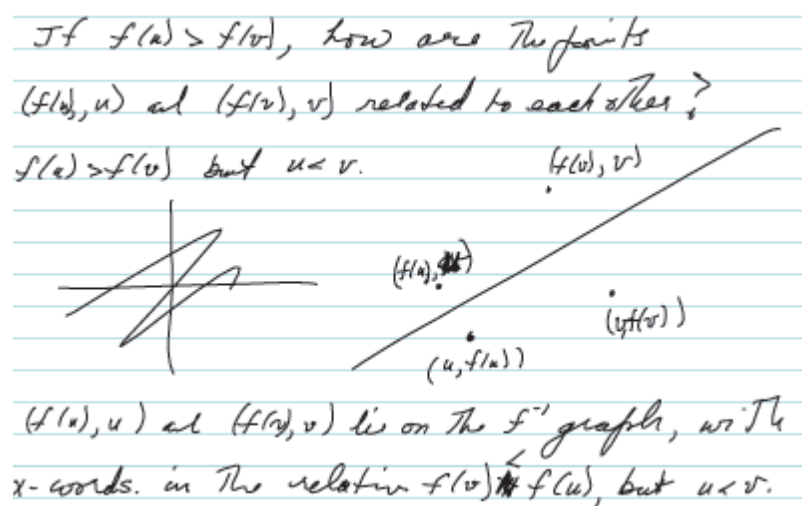 If f(u) > f(v), how are the points
(f(u), u) and (f(v), v) related to each other?
f(u) > f(v) but u < v.
(f(v), v)
(f(u), )
(v, f(v))
(u, f(u))
(f(u), u) and (f(v), v) lie on the f⁻¹ graph, with
x-coords. in the relation f(v) < f(u), but u < v.